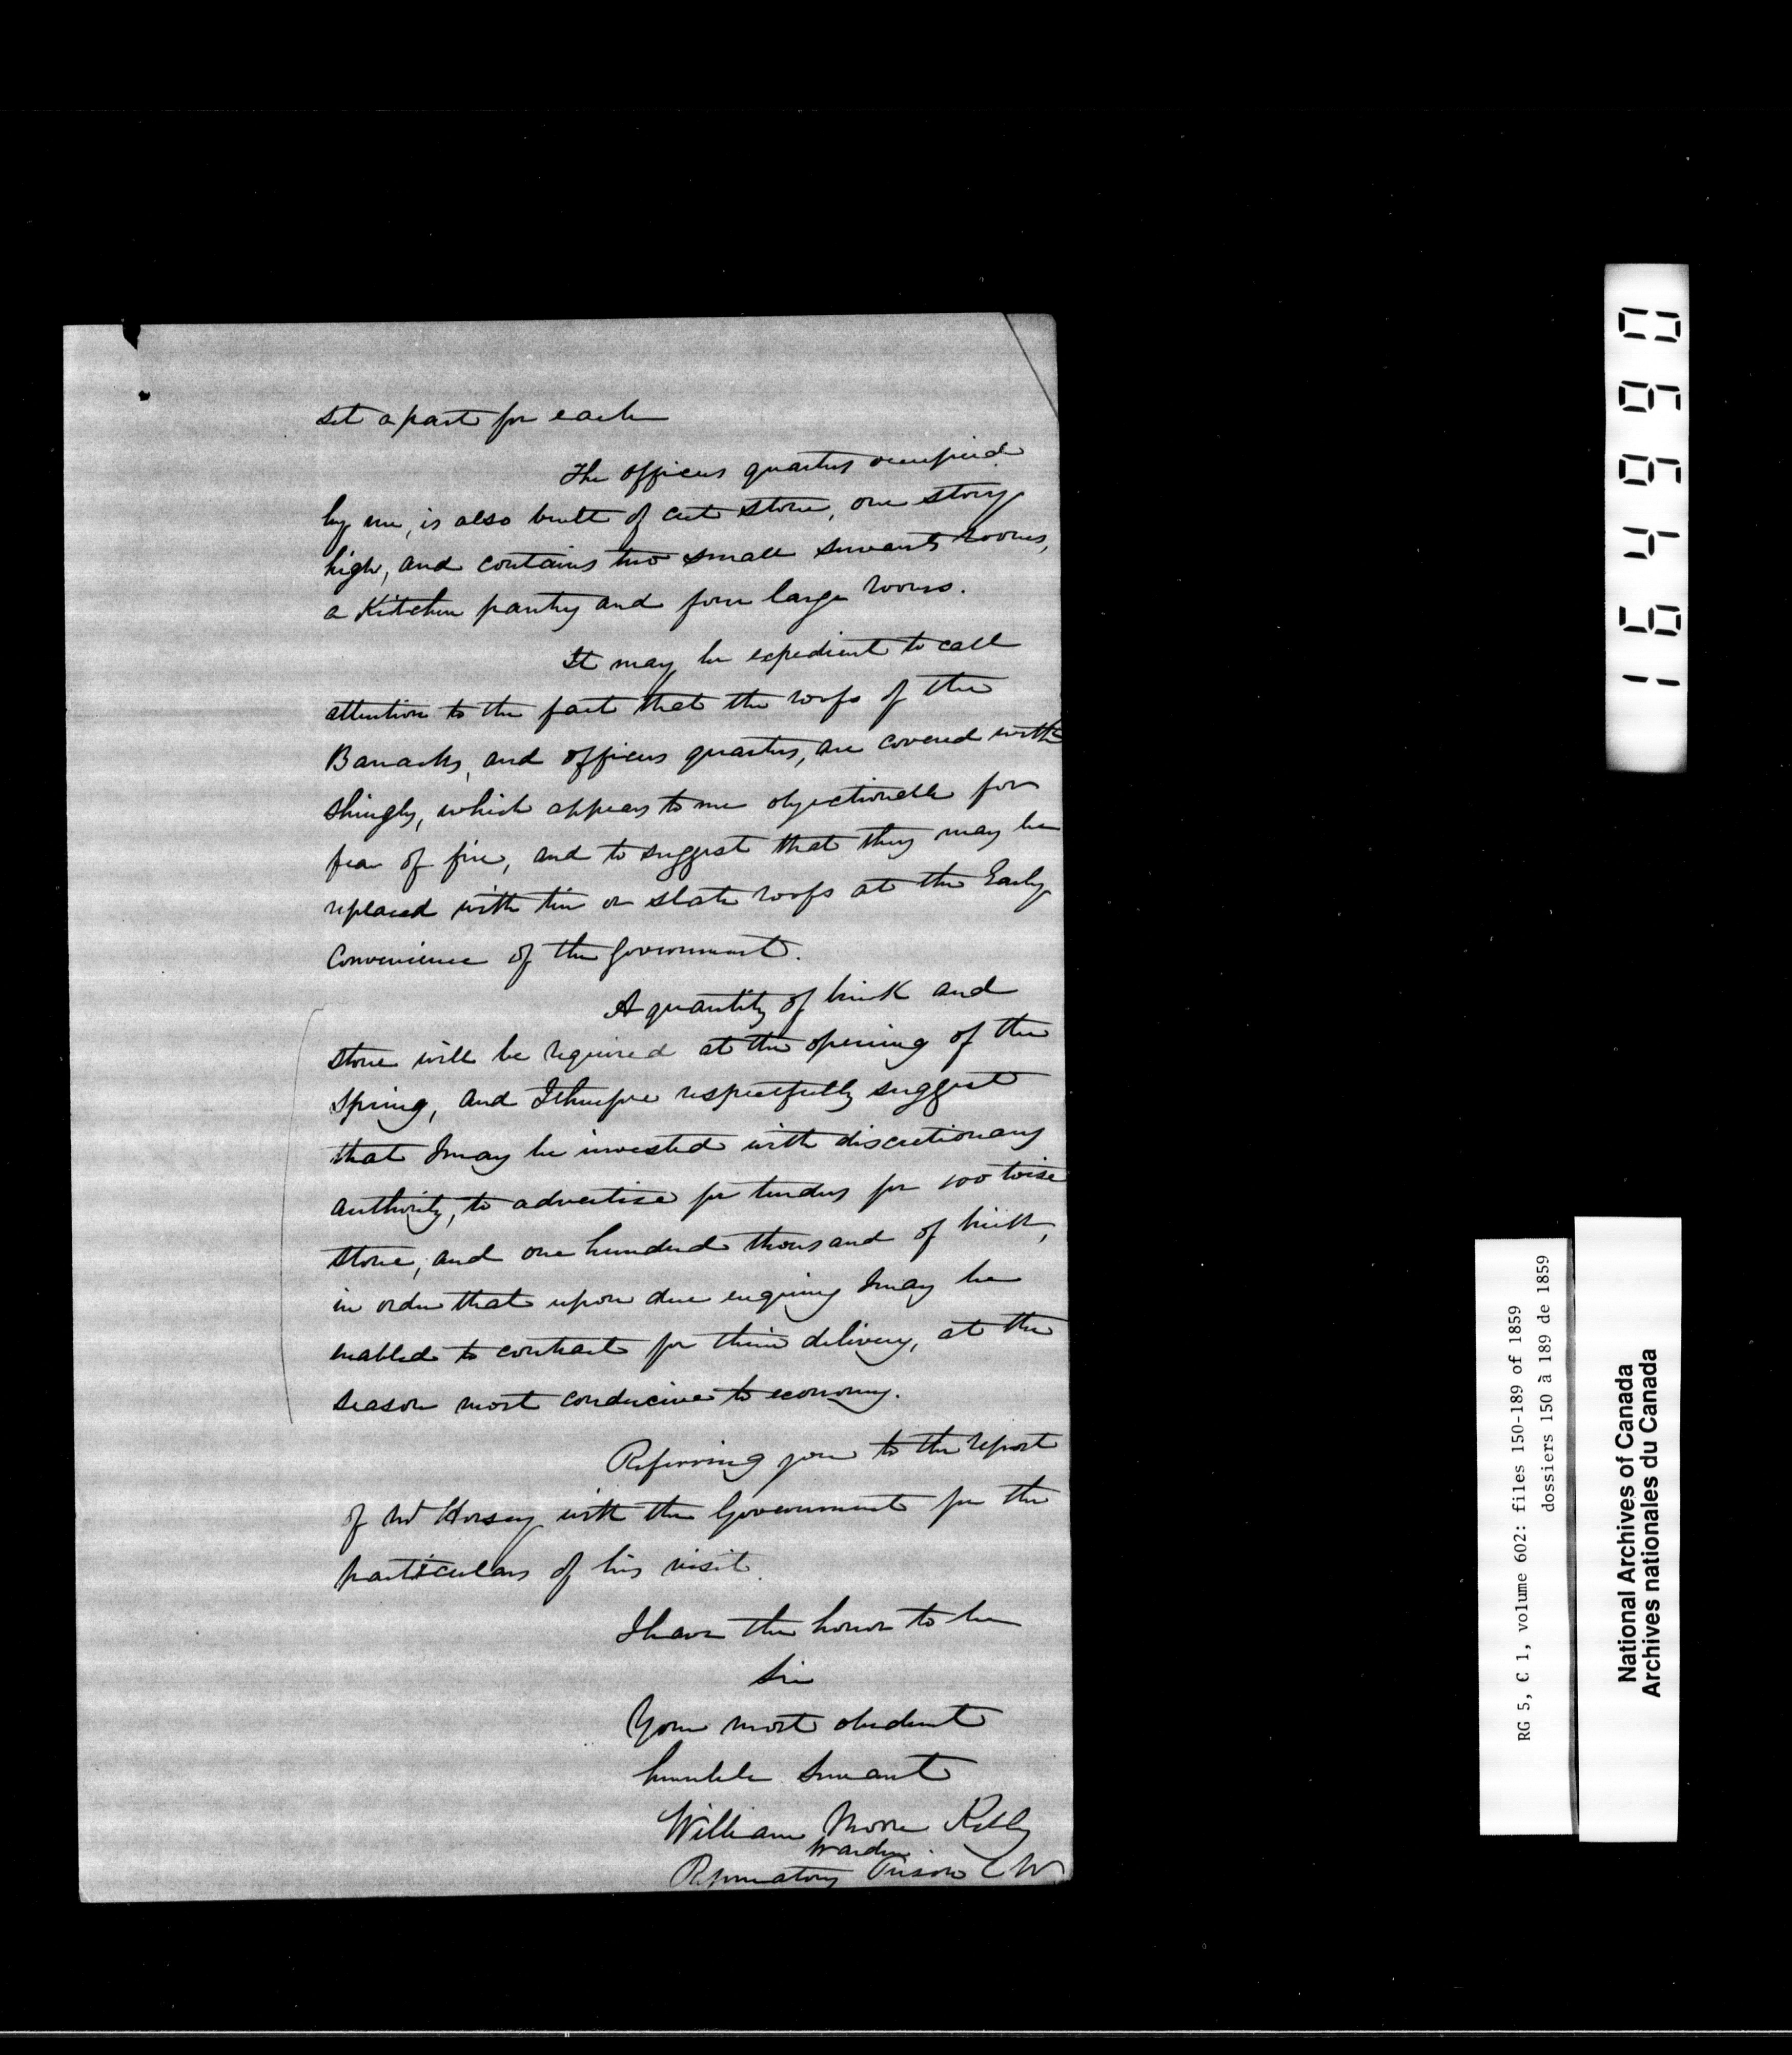 set apart for each
The officers quarters occupied
by me, is also built of cut stone, one story
high, and contains two small servants rooms,
a Kitchen pantry and four large rooms.
It may be expedient to call
attention to the fact that the roofs of the
Barracks, and officers quarters, are covered with
shingles, which appears to me objectionable for
fear of fire, and to suggest that they may be
replaced with tin or slate roofs at the Early
Convenience of the Government.
A quantity of brick and
stone will be required at the opening of the
Spring, and I therefore respectfully suggest
that I may be invested with discretionary
authority, to advertise for tenders for 100 toise
stone, and one hundred thousand of brick,
in order that upon due enquiry I may be
enabled to contract for their delivery, at the
season most conducive to economy.
Referring you to the report
of Mr Horsey with the Government for the
particulars of his visit.
I have the honor to be
Sir
Your most obedient
humble Servant
William Moore Kelly
Warden
Reformatory Prison C W
164990
RG 5, C 1, volume 602: files 150-189 of 1859
dossiers 150 à 189 de 1859
National Archives of Canada
Archives nationales du Canada